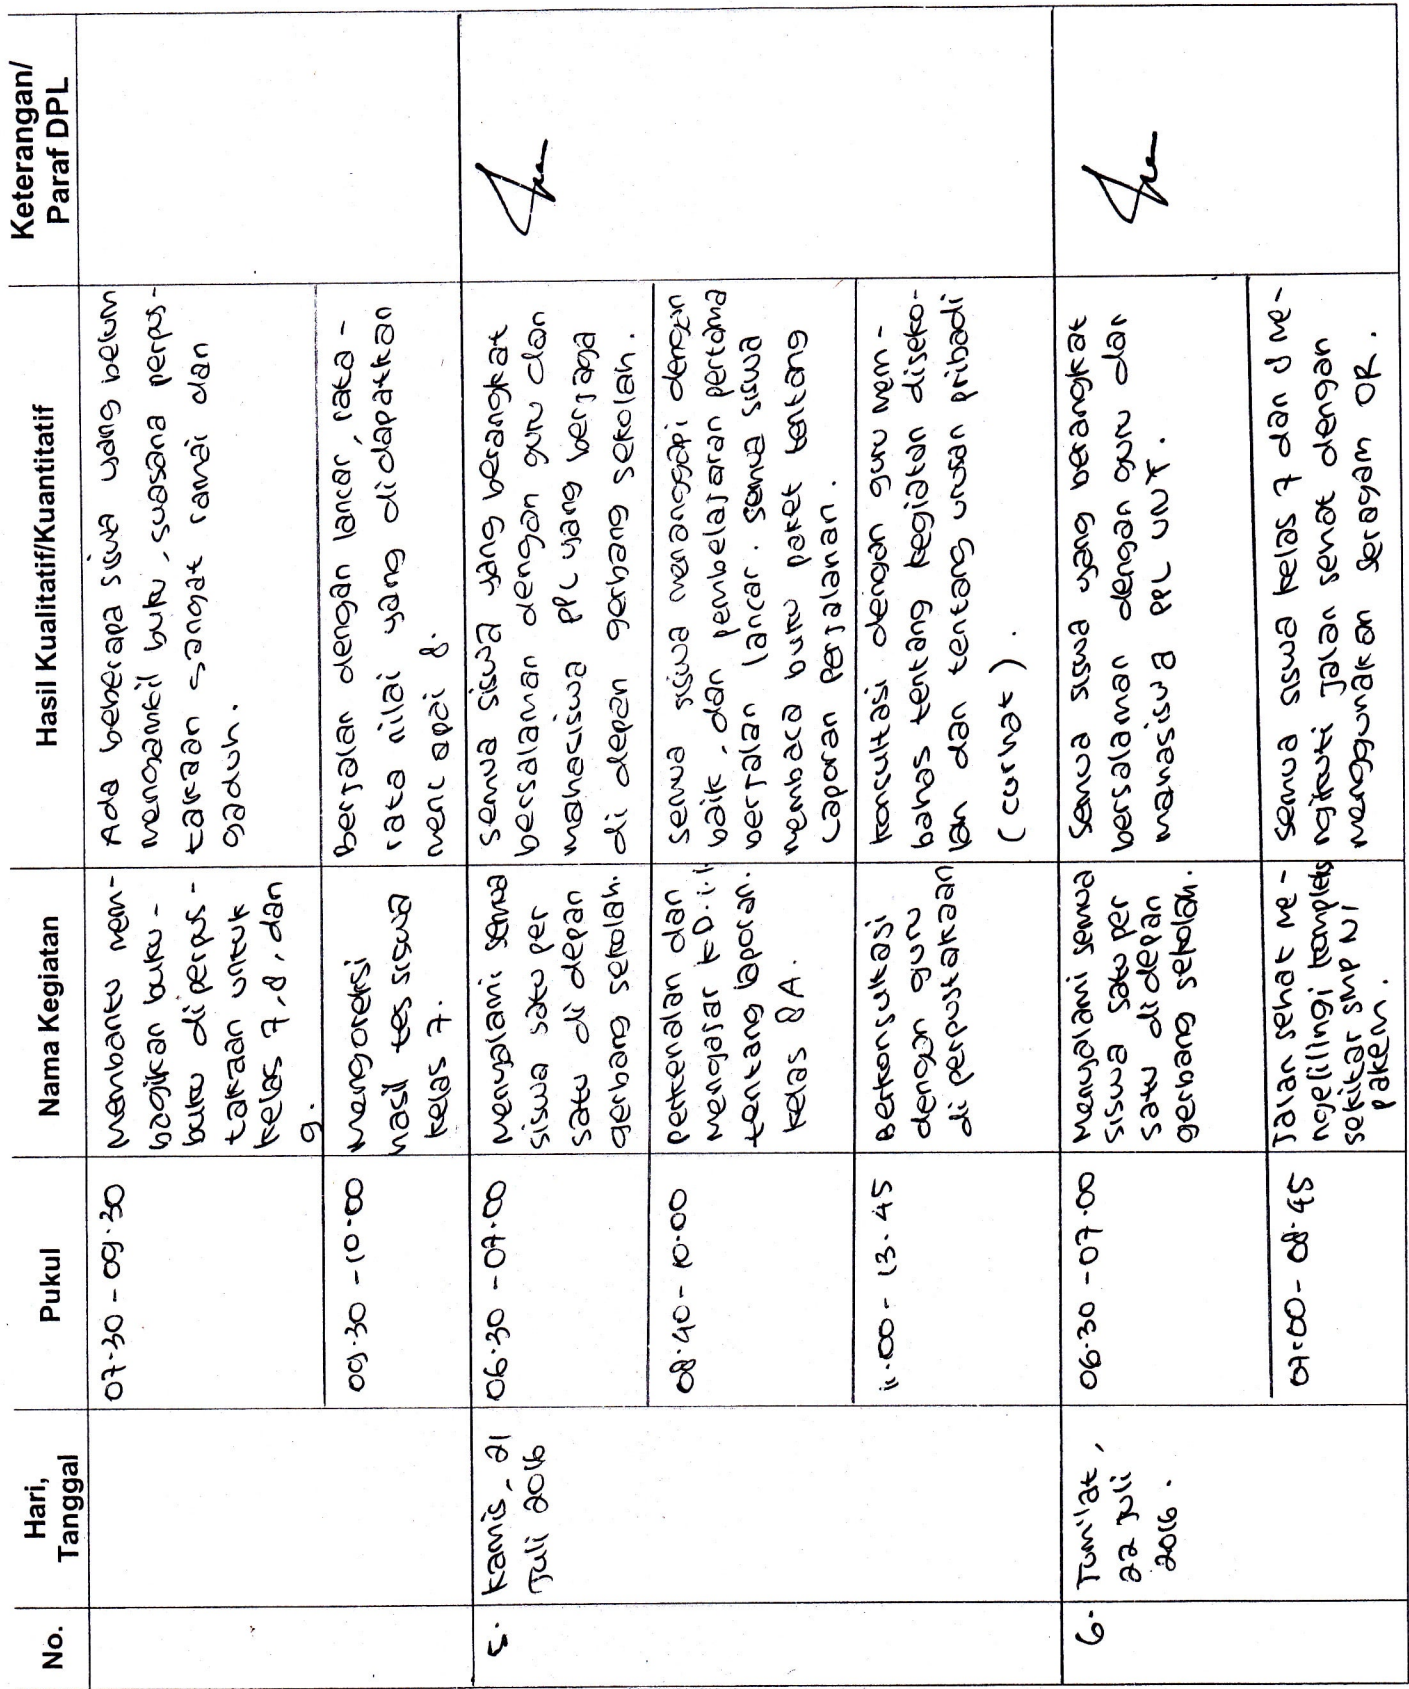 No.
Hari,
Tanggal
Pukul
Nama Kegiatan
Hasil Kualitatif/Kuantitatif
Keterangan/
Paraf DPL
07.30 - 09.30
Membantu mem-
bagikan buku -
buku di perpus -
takaan untuk
kelas 7, 8, dan
9.
Ada beberapa siswa yang belum
mengambil buku, suasana perpus-
takaan sangat ramai dan
gaduh.
09.30 - 10.00
Mengoreksi
hasil tes siswa
kelas 7.
Berjalan dengan lancar, rata -
rata nilai yang didapatkan
mencapai 8.
5.
Kamis, 21
Juli 2016
06.30 - 07.00
Menyalami semua
siswa satu per
satu di depan
gerbang sekolah.
semua siswa yang berangkat
bersalaman dengan guru dan
mahasiswa PPL yang berjaga
di depan gerbang sekolah.
08.40 - 10.00
perkenalan dan
mengajar KD.
tentang laporan.
kelas 8A.
semua siswa menanggapi dengan
baik, dan pembelajaran pertama
berjalan lancar. semua siswa
membaca buku paket tentang
Laporan Perjalanan.
11.00 - 13.45
Berkonsultasi
dengan guru
di perpustakaan
Konsultasi dengan guru mem-
bahas tentang kegiatan diseko-
lah dan tentang urusan pribadi
(curhat).
6.
Jum'at,
22 Juli
2016.
06.30 - 07.00
Menyalami semua
siswa satu per
satu di depan
gerbang sekolah.
Semua siswa yang berangkat
bersalaman dengan guru dan
mahasiswa PPL UNY.
07.00 - 08.45
Jalan sehat me -
ngelilingi kompleks
sekitar SMP N 1
pakem.
semua siswa kelas 7 dan 8 me-
ngikuti jalan sehat dengan
menggunakan seragam OR.